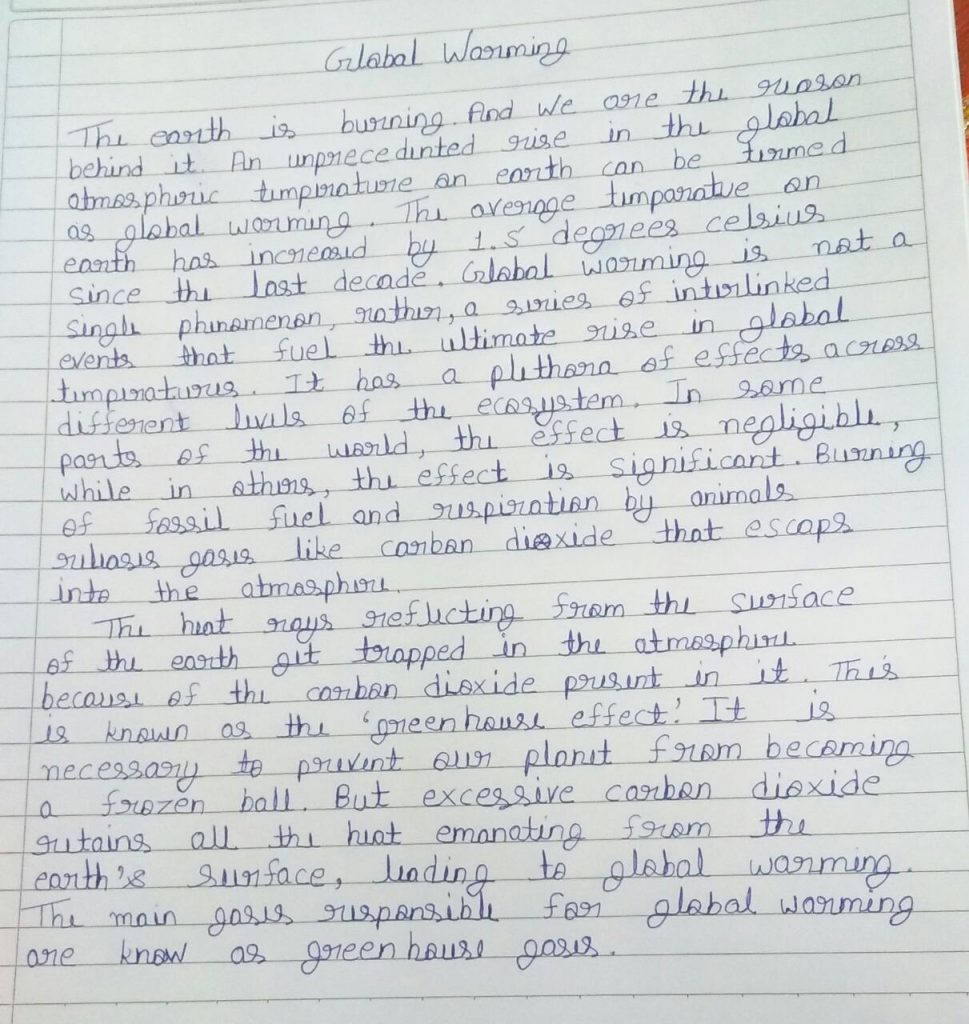 Global Warming
The earth is burning. And We are the reason
behind it. An unprecedented rise in the global
atmospheric temperature on earth can be termed
as global warming. The average temparatue on
earth has increased by 1.5 degrees celsius
since the last decade. Global warming is not a
single phenomenon, rather, a series of interlinked
events that fuel the ultimate rise in global
temperatures. It has a plethora of effects across
different levels of the ecosystem. In some
parts of the world, the effect is negligible,
while in others, the effect is significant. Burning
of fossil fuel and respiration by animals
releases gases like carbon dioxide that escaps
into the atmosphere.
The heat rays reflecting from the surface
of the earth get trapped in the atmosphere
because of the carbon dioxide present in it. This
is known as the 'greenhouse effect.' It is
necessary to prevent our planet from becoming
a frozen ball. But excessive carbon dioxide
retains all the heat emanating from the
earth's surface, leading to global warming.
The main gases responsible for global warming
are know as greenhouse gases.